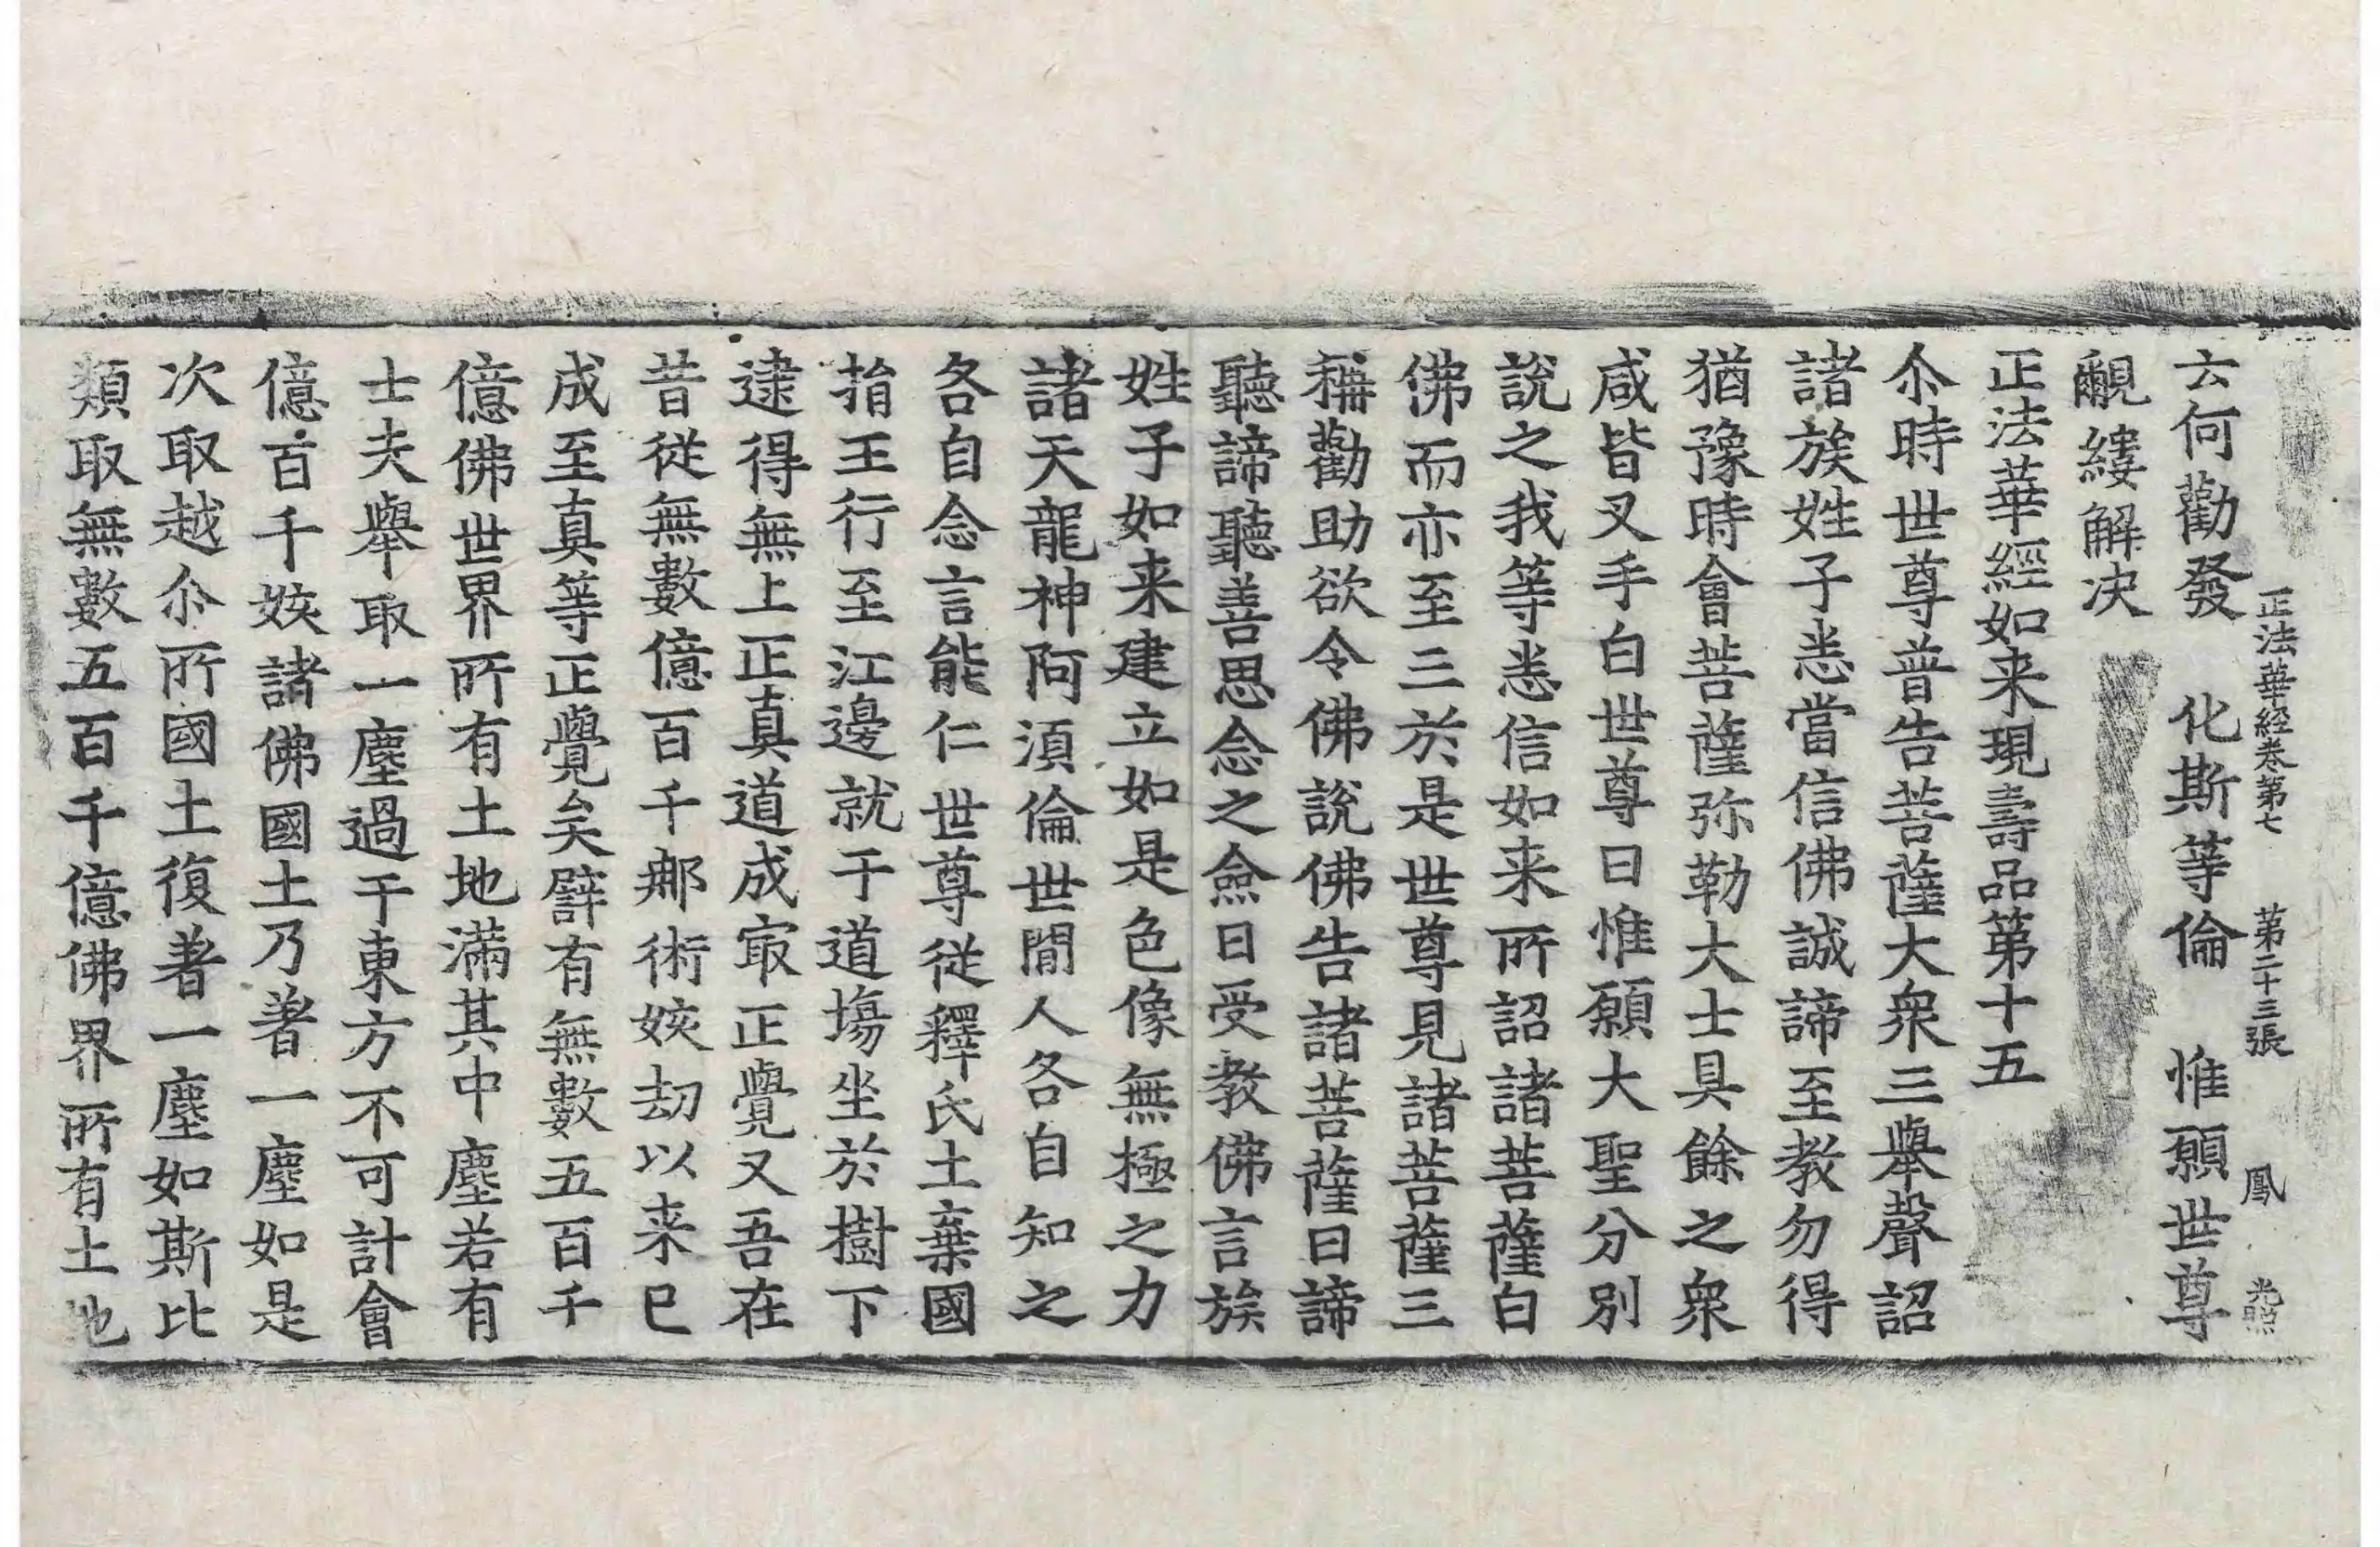 正法華経卷第七 第二十三張 鳳 光照
云何勸發 化斯等倫 惟願世尊
覼縷解決
正法華經如来現壽品第十五
尒時世尊普告菩薩大衆三舉聲詔
諸族姓子悉當信佛誠諦至教勿得
猶豫時會菩薩弥勒大士具餘之衆
咸皆叉手白世尊曰惟願大聖分別
說之我等悉信如来所詔諸菩薩白
佛而亦至三於是世尊見諸菩薩三
稱勸助欲令佛說佛告諸菩薩曰諦
聽諦聽善思念之僉曰受教佛言族
姓子如来建立如是色像無極之力
諸天龍神阿須倫世間人各自知之
各自念言能仁世尊従釋氏土棄國
捐王行至江邊就于道場坐於樹下
逮得無上正真道成冣正覺又吾在
昔従無數億百千那術姟劫以来已
成至真等正覺矣譬有無數五百千
億佛世界所有土地滿其中塵若有
士夫舉取一塵過于東方不可計會
億百千姟諸佛國土乃著一塵如是
次取越尒所國土復著一塵如斯比
類取無數五百千億佛界所有土地